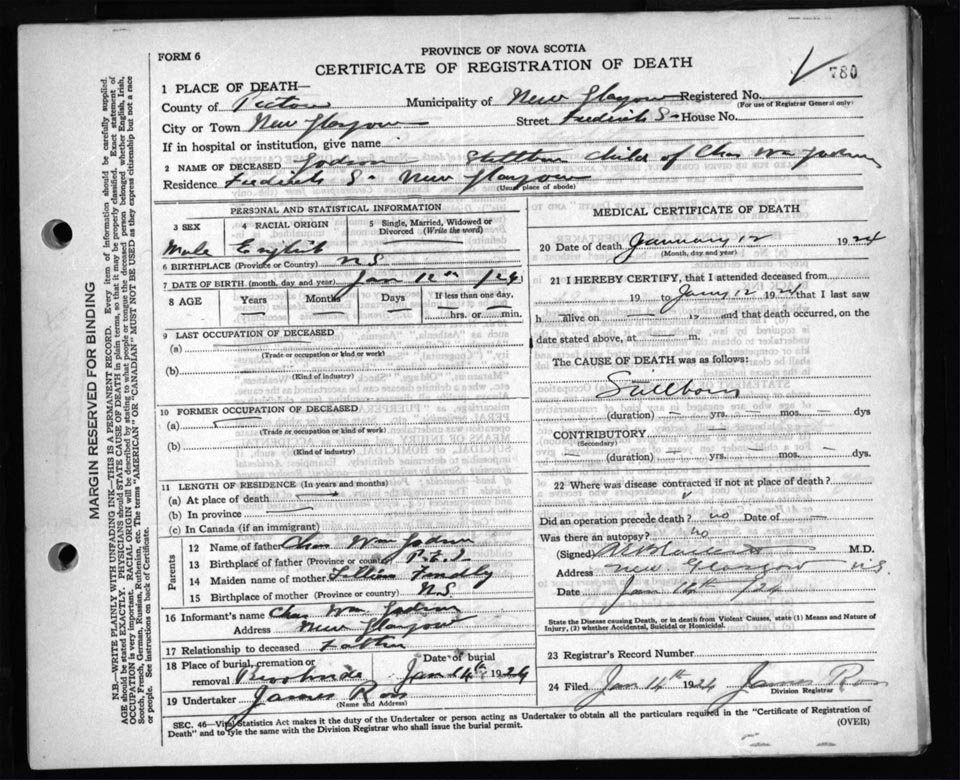 PROVINCE OF NOVA SCOTIA
FORM 6
CERTIFICATE OF REGISTRATION OF DEATH
780
1 PLACE OF DEATH—
County of Pictou Municipality of New Glasgow Registered No.
(For use of Registrar General only)
City or Town New Glasgow Street Frederick St House No.
If in hospital or institution, give name
2 NAME OF DECEASED Stillborn child of Chas Wm
Residence Frederick St New Glasgow
(Usual place of abode)
PERSONAL AND STATISTICAL INFORMATION
3 SEX 4 RACIAL ORIGIN 5 Single, Married, Widowed or Divorced (Write the word)
Male English
6 BIRTHPLACE (Province or Country) N.S.
7 DATE OF BIRTH (month, day and year) Jan 12th /24
8 AGE Years Months Days If less than one day,
hrs. or min.
9 LAST OCCUPATION OF DECEASED
(a)
(Trade or occupation or kind or work)
(b)
(Kind of industry)
10 FORMER OCCUPATION OF DECEASED
(a)
(Trade or occupation or kind or work)
(b)
(Kind of industry)
11 LENGTH OF RESIDENCE (In years and months)
(a) At place of death
(b) In province
(c) In Canada (if an immigrant)
Parents
12 Name of father Chas Wm
13 Birthplace of father (Province or country) P.E.I.
14 Maiden name of mother Lillian
15 Birthplace of mother (Province or country) N.S.
16 Informant's name Chas Wm
Address New Glasgow
17 Relationship to deceased Father
18 Place of burial, cremation or removal Brookside Date of burial Jan 14th 1924
19 Undertaker James Ross
(Name and Address)
MEDICAL CERTIFICATE OF DEATH
20 Date of death January 12 1924
(Month, day and year)
21 I HEREBY CERTIFY, that I attended deceased from
19 to Jany 12 1924 that I last saw
h alive on 19 and that death occurred, on the
date stated above, at m.
The CAUSE OF DEATH was as follows:
Stillborn
(duration) — yrs. — mos. — dys
CONTRIBUTORY
(Secondary)
(duration) — yrs. — mos. — dys.
22 Where was disease contracted if not at place of death?
Did an operation precede death? no Date of —
Was there an autopsy? no
(Signed) M.D.
Address New Glasgow N.S.
Date Jan
State the Disease causing Death, or in death from Violent Causes, state (1) Means and Nature of
Injury, (2) whether Accidental, Suicidal or Homicidal.
23 Registrar's Record Number
24 Filed Jan 14th 1924 James Ross
Division Registrar
SEC. 46—Vital Statistics Act makes it the duty of the Undertaker or person acting as Undertaker to obtain all the particulars required in the "Certificate of Registration of
Death" and to file the same with the Division Registrar who shall issue the burial permit.
(OVER)
MARGIN RESERVED FOR BINDING
N.B.—WRITE PLAINLY WITH UNFADING INK—THIS IS A PERMANENT RECORD. Every item of information should be carefully supplied.
AGE should be stated EXACTLY. PHYSICIANS should STATE CAUSE OF DEATH in plain terms, so that it may be properly classified. Exact statement of
OCCUPATION is very important. RACIAL ORIGIN will be described by stating to what people or tongue the deceased person belonged whether English, Irish,
Scotch, French, German, Russian, Ruthenian, etc. The terms "AMERICAN" OR "CANADIAN" MUST NOT BE USED as they express citizenship but not a race
or people. See instructions on back of Certificate.